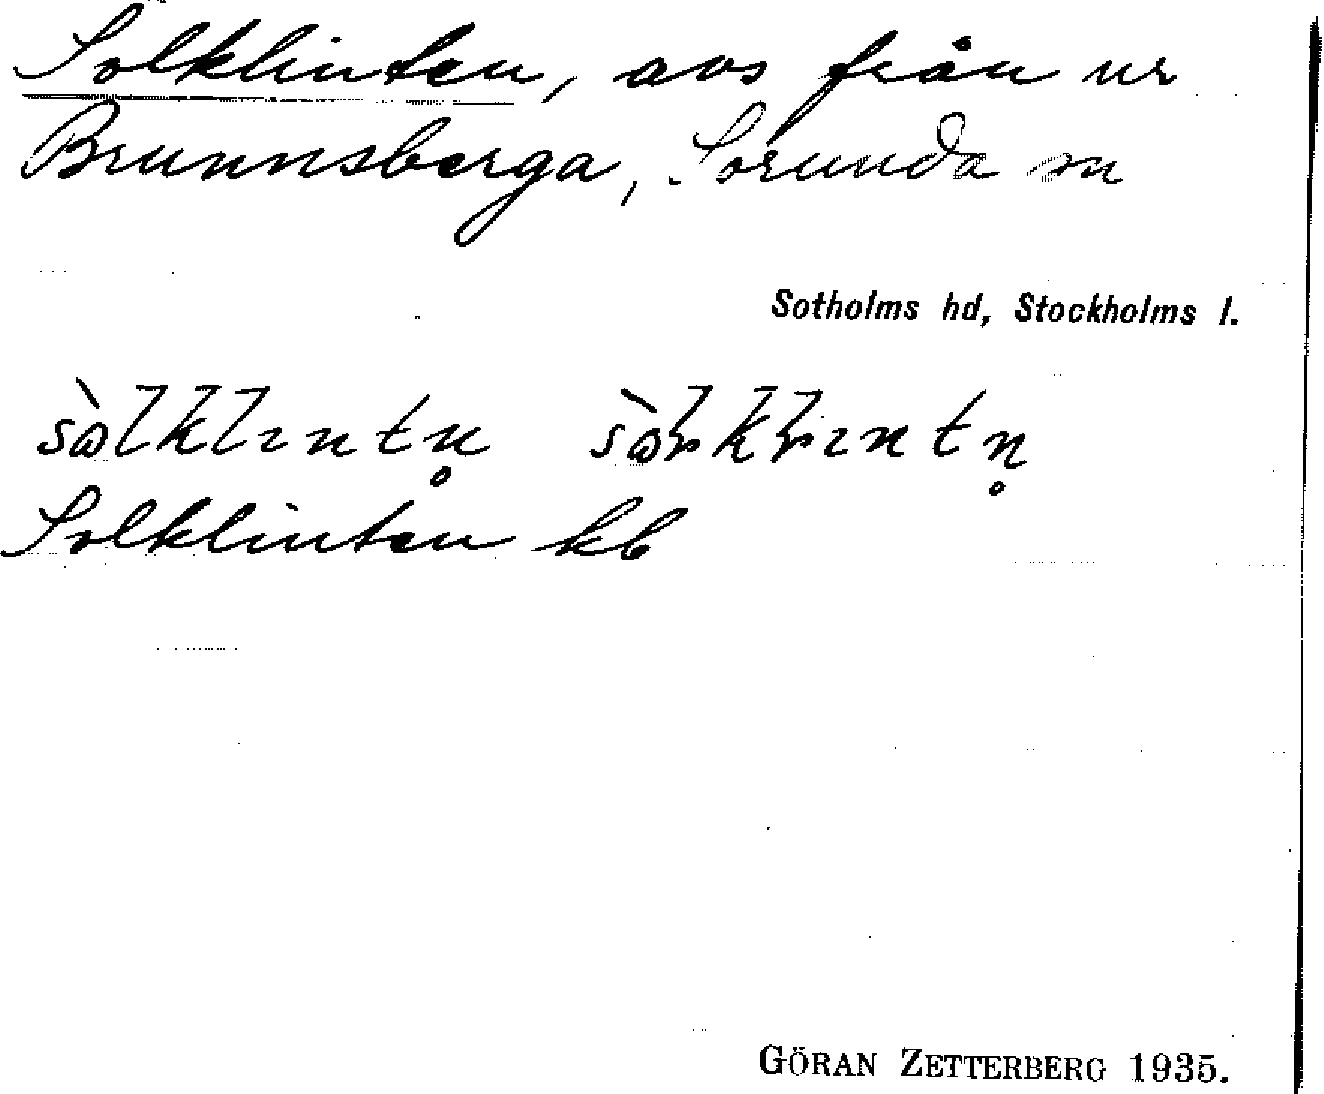 Solklinten, avs från nr
Brunnsberga, Sorunda sn
Sotholms hd, Stockholms l.
Solklinten kb
GÖRAN ZETTERBERG 1935.